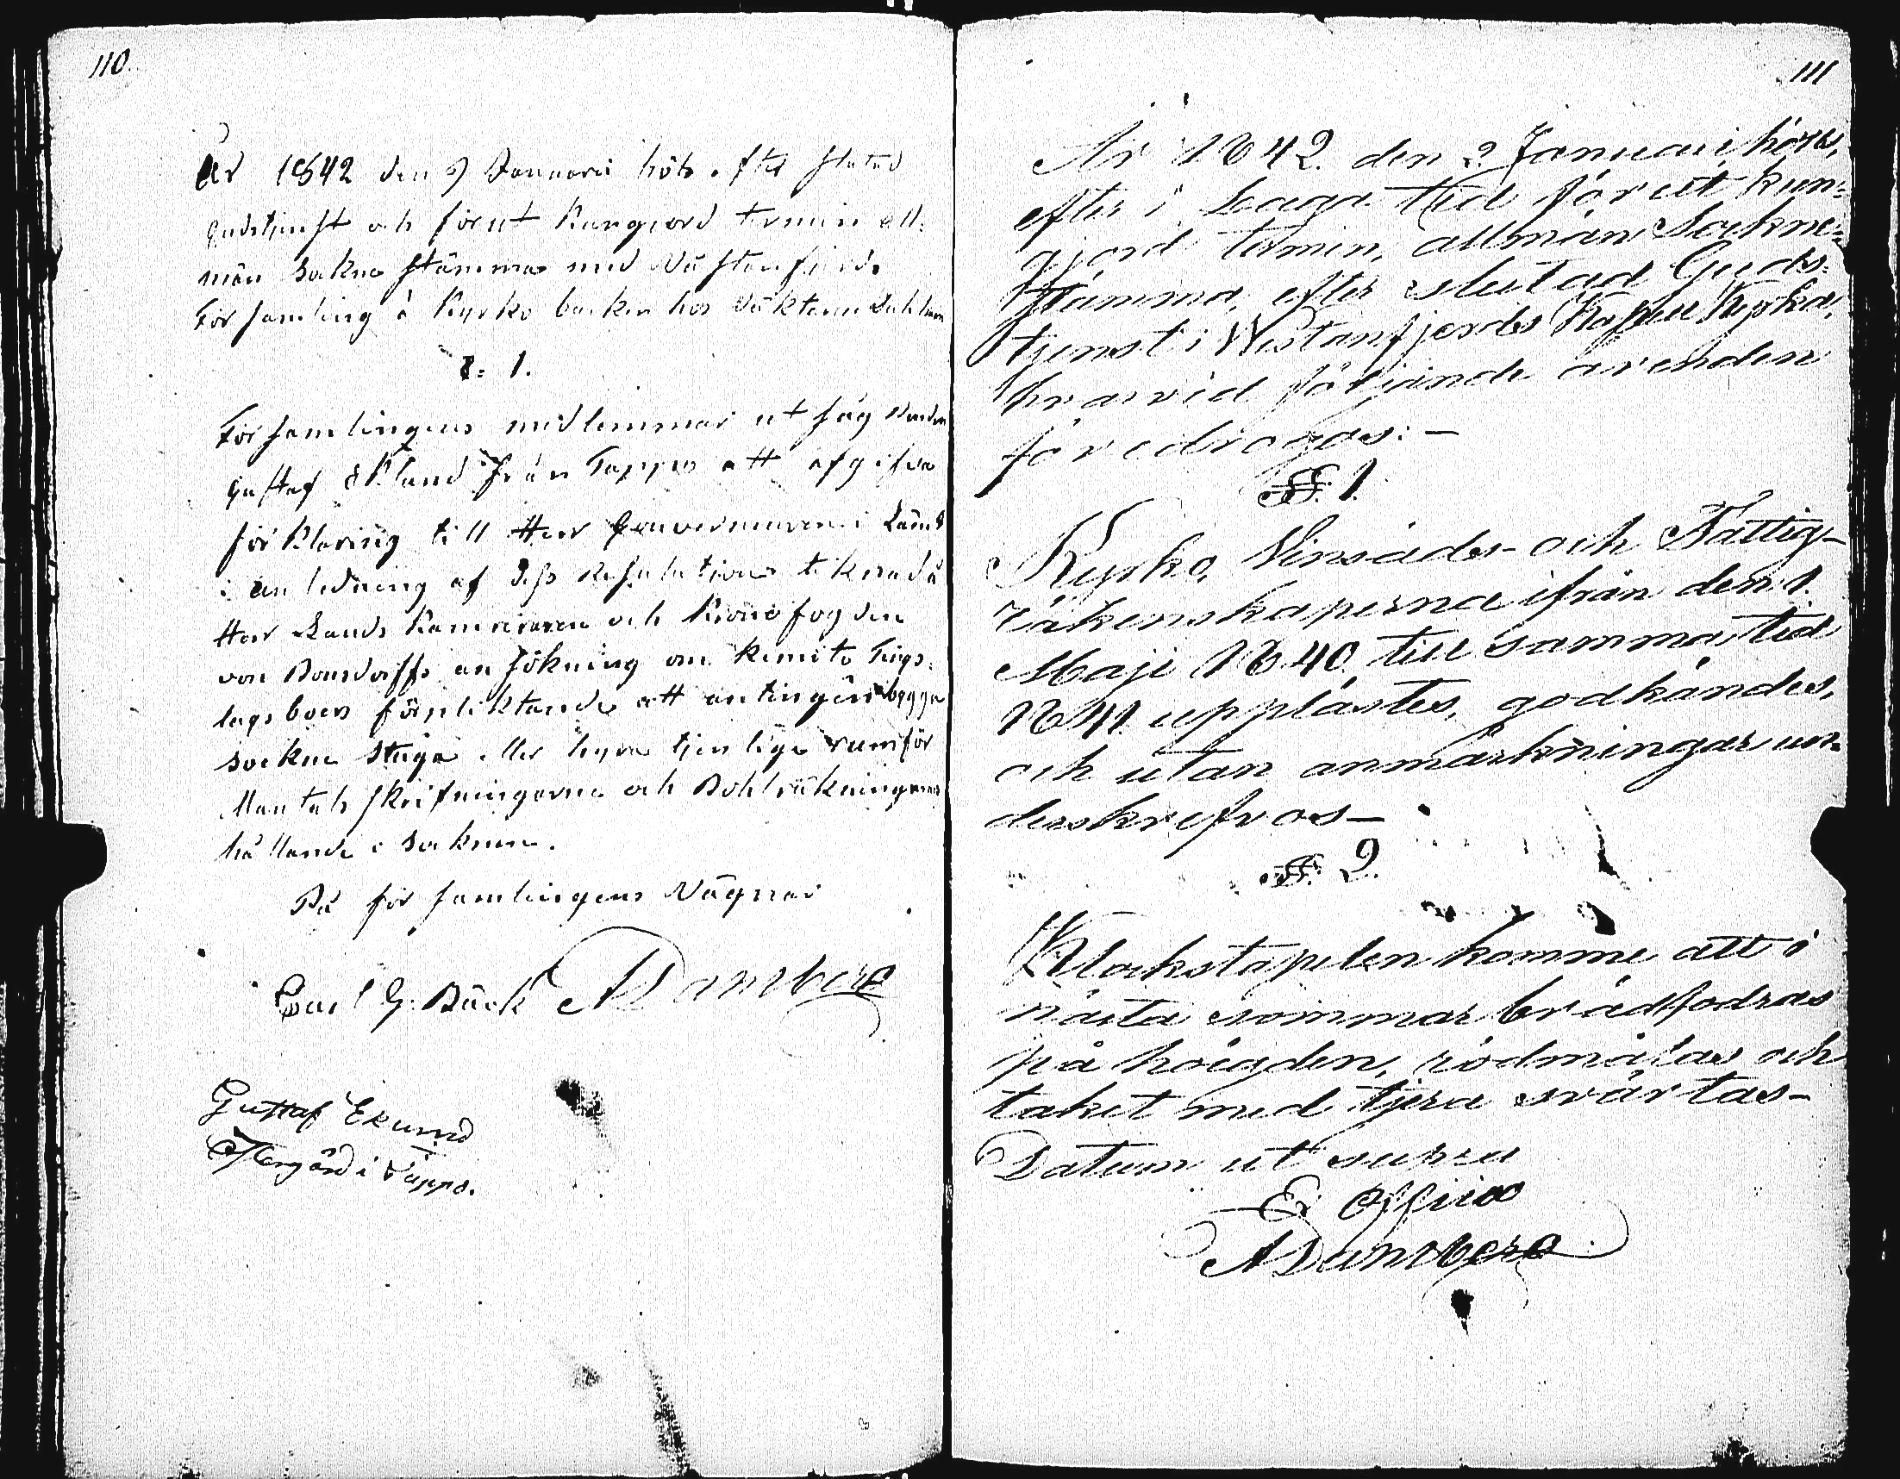 110.
År 1842 den 9 Januari höls efter slutad
gudstjenst och förut kungjord termin all-
män Sokne stämma med Västanfjerds
Församling å Kyrko backen hos Väktaren Dahlman
§: 1.
Församlingens medlemmar utsåg Bonden
Gustaf Eklund från Tappo att afgifva
förklaring till Herr Gouverneuren i Länet
i anledning af dess Resolution teknad å
Herr Lands Kamreraren och Kronofogden
von Bonsdorffs ansökning om Kimito Tings-
lags boers förpliktande att antingen bygga
sockne stuga eller hyra tjenlige rum för
Mantals skrifningarna och Bohlräkningarnas
hållande i Soknen.
På församlingens Vägnar
Carl G: Bäck ADamberg
Gustaf Eklund
Östergård i Tappo.
111
År 1842. den 2 Januari hölts,
efter i Laga tid förut kun-
gjord termin, allmän Sockne-
stämma, efter slutad Guds-
tjenst i Westanfjerds Kapell Kyrka,
hvarvid följande ärenden
föredrogos:—
§. 1.
Kyrko, Vinsäds- och Fattig-
räkenskaperna ifrån den 1.
Maji 1840, till samma tid
1841 upplästes, godkändes,
och utan anmärkningar un-
derskrefvos—
§. 2.
Klockstapelen komme att i
nästa sommar brädfodras
på högden, rödmålas och
taket med tjera svärtas—
Datum ut supra
Ex Officio
ADamberg